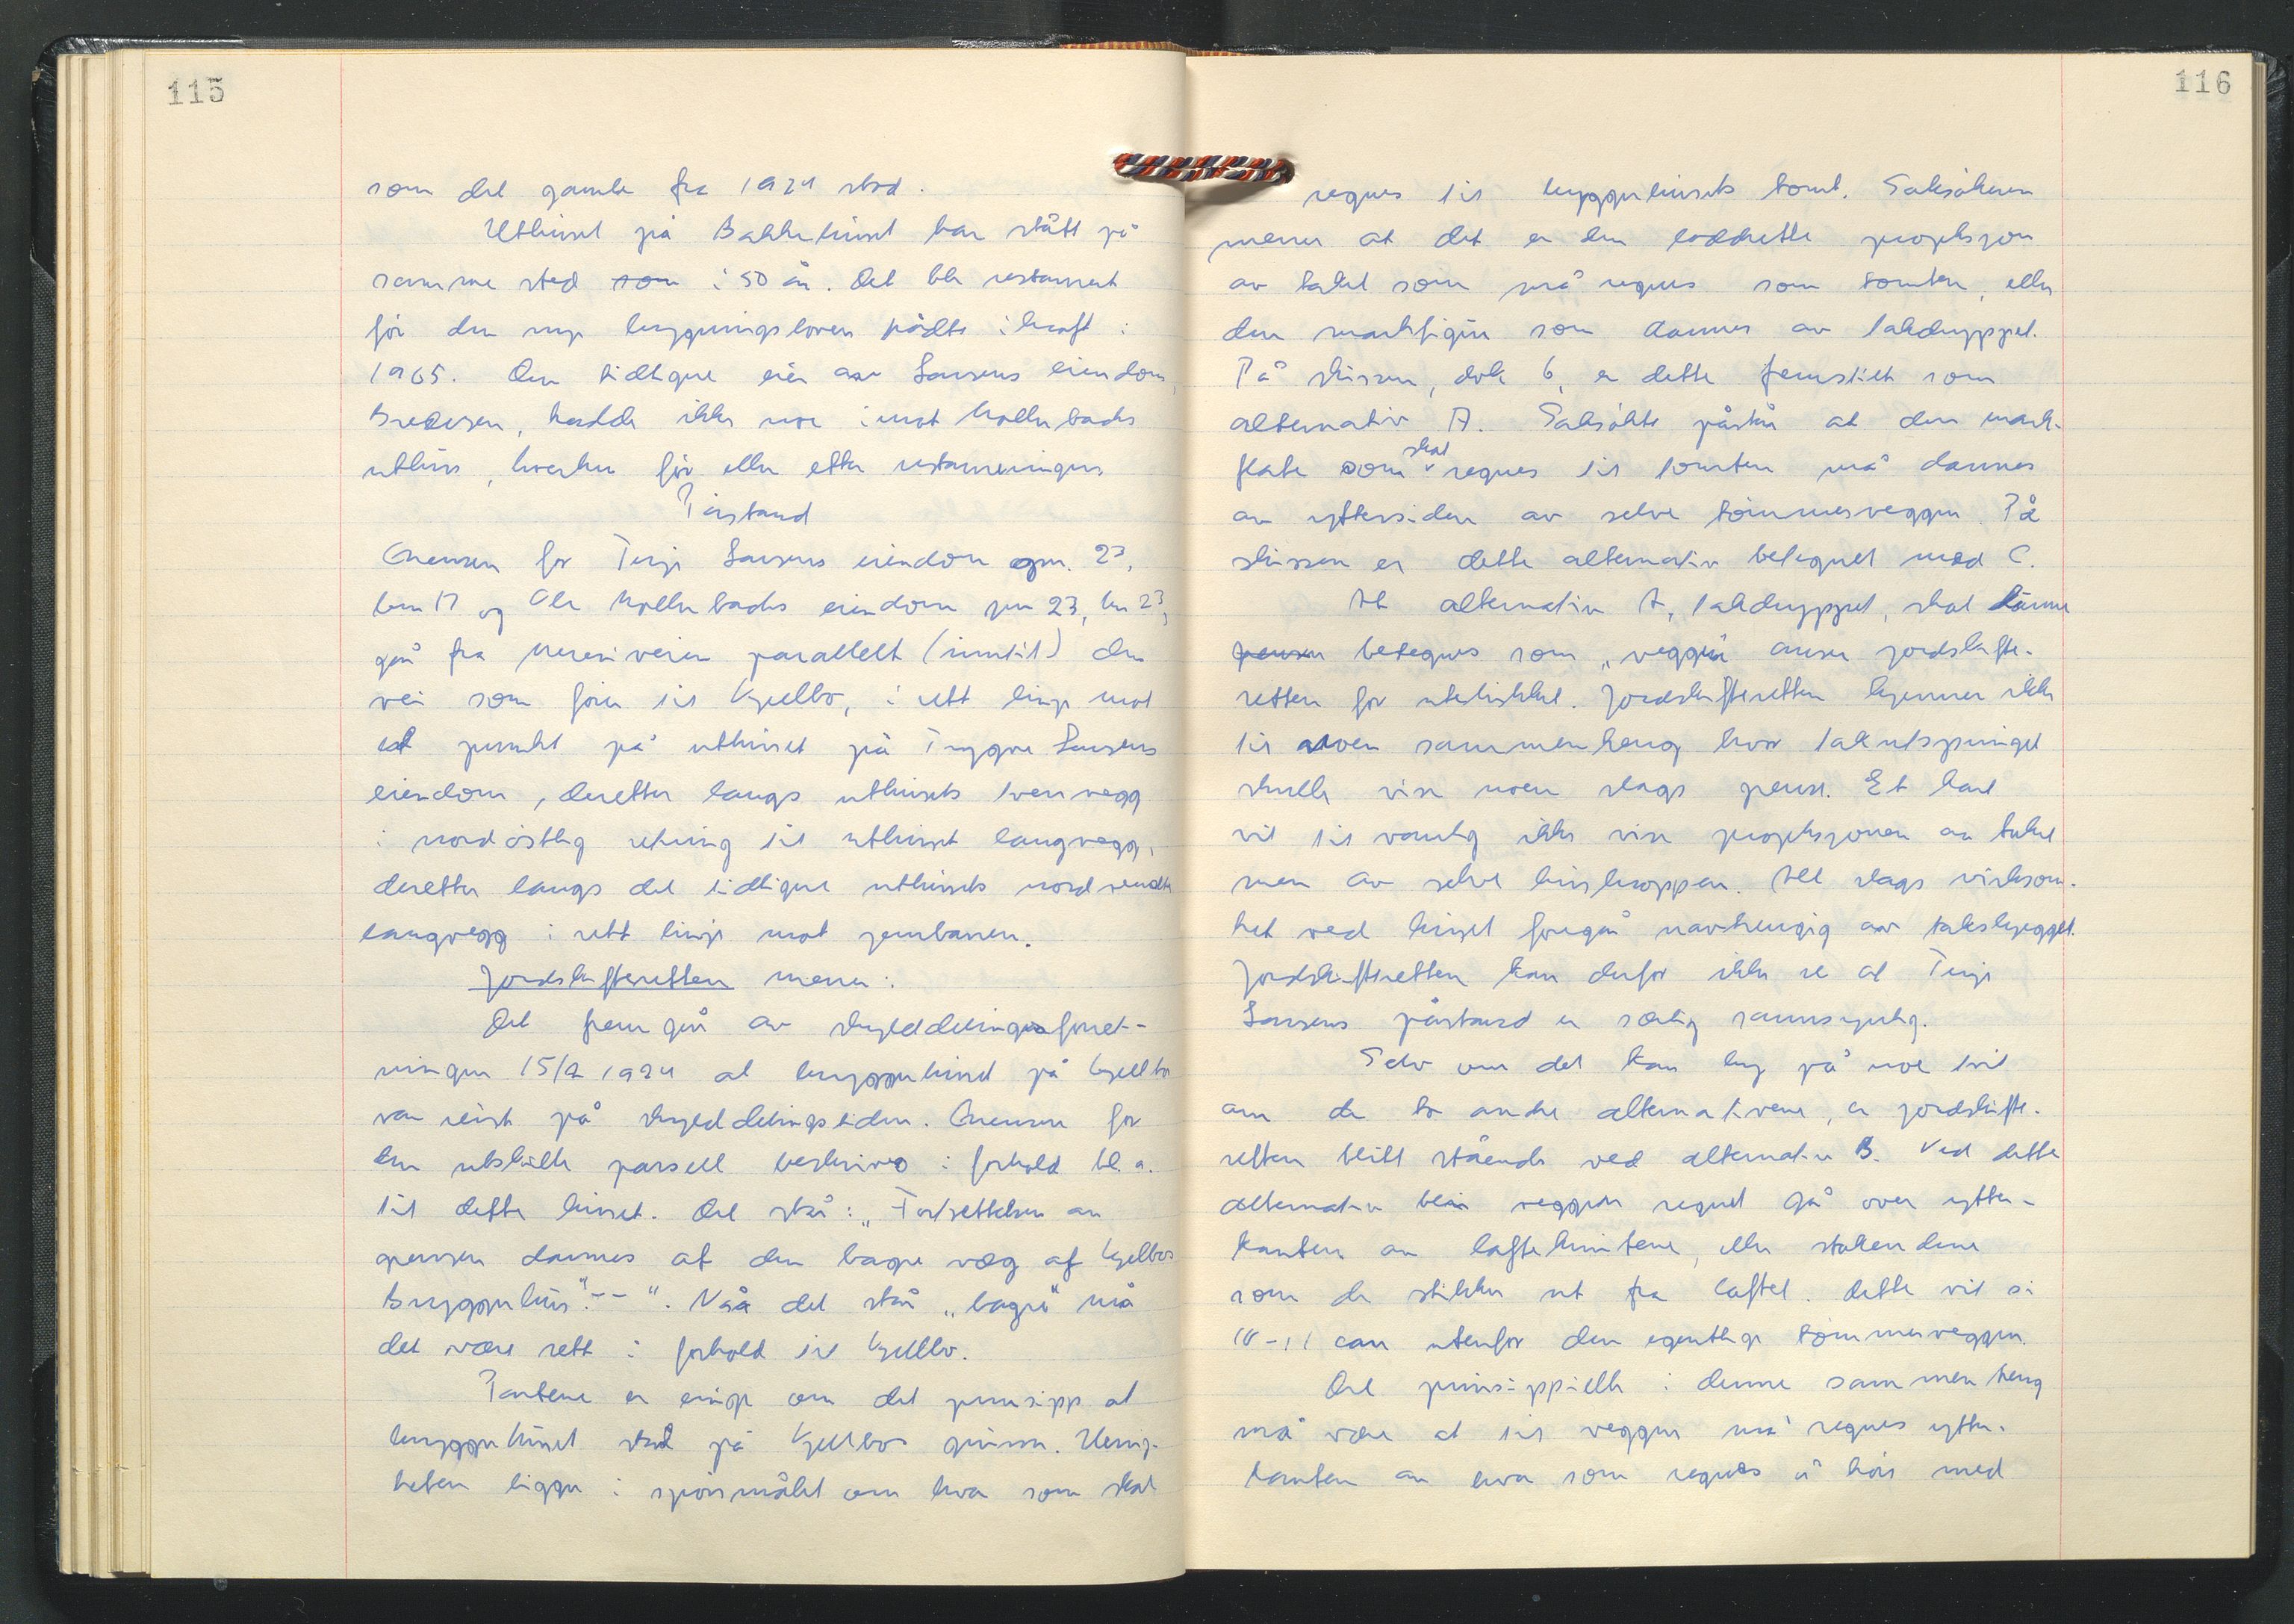 115
som det gamle fra 1924 stod.
Uthuset på Bakkehuset har stått på
samme sted som i 50 år. Det ble restaurert
før den nye bygningsloven trådte i kraft i
1965. Den tidligere eier av Larsens eiendom,
Bredesen, hadde ikke noe imot Mollerbachs
uthus, hverken før eller etter restaureringen.
Påstand
Grensen for Terje Larsens eiendom gnr. 23,
bnr 17 og Ole Mollerbachs eiendom gnr 23, bnr 23,
går fra Meresiveien parallelt (inntil) den
vei som fører til Kjellbo, i rett linje mot
et punkt på uthuset på Trygve Larsens
eiendom, deretter langs uthusets tverrvegg
i nordøstlig retning til uthuset langvegg,
deretter langs det tidligere uthusets nordvendte
langvegg i rett linje mot jernbanen.
Jordskifteretten mener:
Det fremgår av skylddelingsforret-
ningen 15/2 1924 at bryggerhuset på Kjellbo
var reist på skylddelingstiden. Grensen for
den utskilte parsell beskrives i forhold bl.a.
til dette huset. Det står: „Fortsettelsen av
grensen dannes af den bagre væg af Kjellbos
Bryggerhus"-- ". Når det står „bagre" må
det være sett i forhold til Kjellbo.
Partene er enige om det prinsipp at
bryggerhuset stod på Kjellbos grunn. Uenig-
heten ligger i spørsmålet om hva som skal
116
regnes til bryggerhusets tomt. Saksøkeren
mener at det er den loddrette projeksjon
av taket som må regnes som tomten, eller
den markfigur som dannes av takdryppet.
På skissen, dok 6, er dette fremstilt som
alternativ A. Saksøkte påstår at den mark-
flate som skal regnes til tomten må dannes
av yttersiden av selve tømmerveggen. På
skissen er dette alternativ betegnet med C.
At alternativ A, takdryppet, skal kunne
grensen betegnes som „veggen" anser jordskifte-
retten for utelukket. Jordskifteretten kjenner ikke
til noen sammenheng hvor takutspringet
skulle vise noen slags grense. Et kart
vil til vanlig ikke vise projeksjonen av taket
men av selve huskroppen. All slags virksom-
het ved huset foregår uavhengig av takskjegget.
Jordskifteretten kan derfor ikke se at Terje
Larsens påstand er særlig sannsynlig.
Selv om det kan by på noe tvil
om de to andre alternativene, er jordskifte-
retten blitt stående ved alternativ B. Ved dette
alternativ blir veggen regnet gå over ytter-
kanten av lafteknutene, eller stokkendene
som de stikker ut fra laftet. Dette vil si
10-11 cm utenfor den egentlige tømmerveggen.
Det prinsippielle i denne sammenheng
må være at til veggen må regnes ytter-
kanten av hva som regnes å høre med